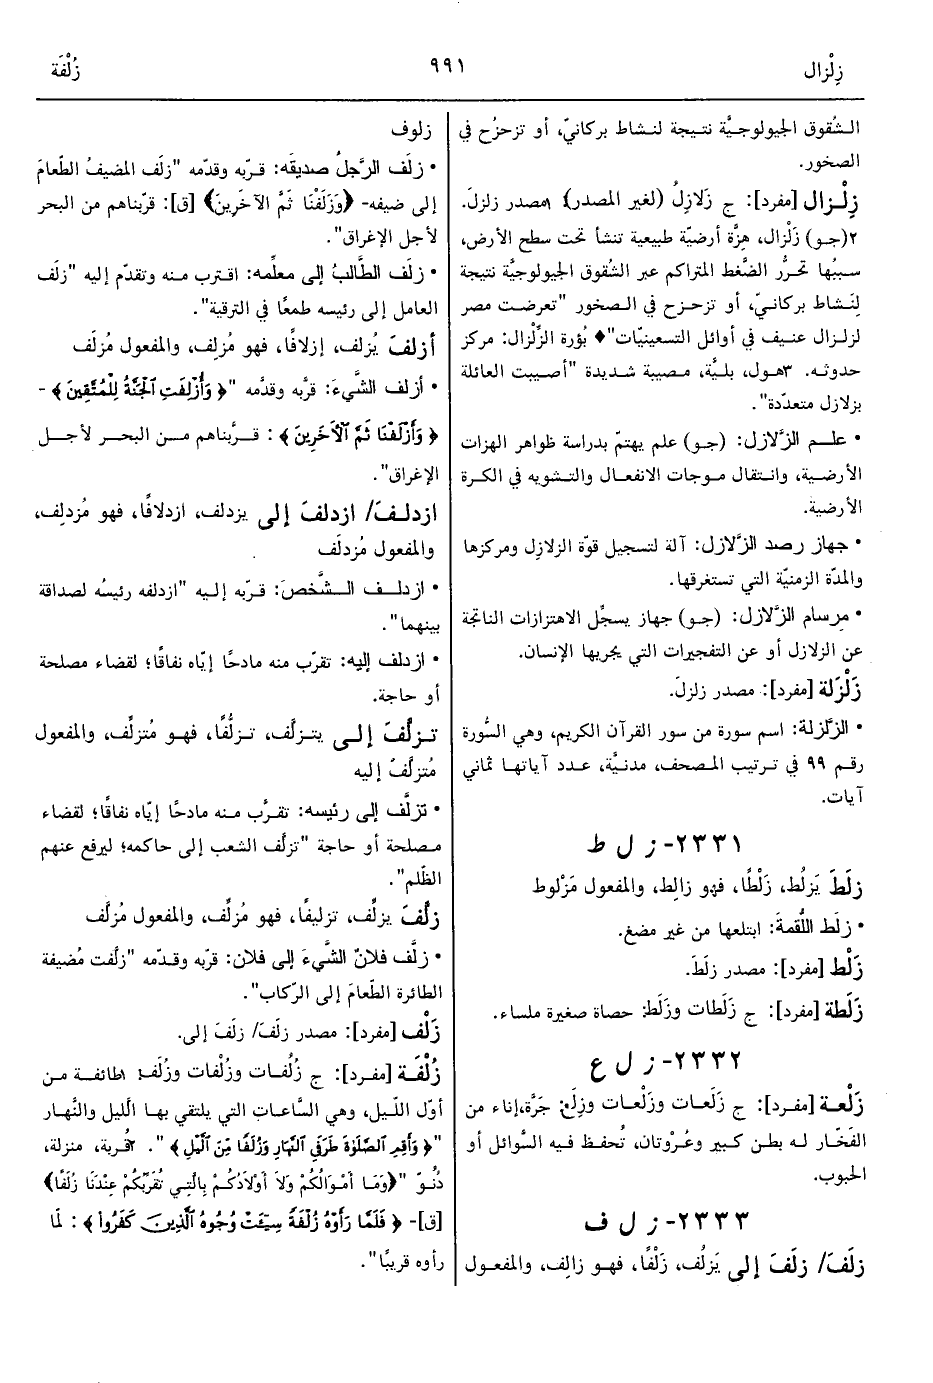 زِلْزال
٩٩١
زُلْفَة
الشُقوق الجيولوجيَّة نتيجة لنشاط بركانيّ، أو تزحزُح في
الصخور.
زِلْزال [مفرد]: ج زَلازِلُ (لغير المصدر): ١مصدر زلزلَ.
٢(جو) زَلْزال، هِزَّة أرضيّة طبيعية تنشأ تحت سطح الأرض،
سببُها تحرُّر الضَّغط المتراكم عبر الشُقوق الجيولوجيَّة نتيجة
لِنَشاط بركانيّ، أو تزحزح في الصخور "تعرضت مصر
لزلزال عنيف في أوائل التسعينيّات" ♦ بُؤرة الزِّلْزال: مركز
حدوثه. ٣هول، بليَّة، مصيبة شديدة "أصيبت العائلة
بزلازل متعدّدة".
• علم الزَّلازل: (جو) علم يهتمّ بدراسة ظواهر الهزات
الأرضية، وانتقال موجات الانفعال والتشويه في الكرة
الأرضية.
• جهاز رصد الزَّلازل: آلة لتسجيل قوّة الزلازِل ومركزها
والمدّة الزمنيّة التي تستغرقها.
• مرسام الزَّلازل: (جو) جهاز يسجِّل الاهتزازات الناتجة
عن الزلازل أو عن التفجيرات التي يجريها الإنسان.
زَلْزَلة [مفرد]: مصدر زلزلَ.
• الزَّلزلة: اسم سورة من سور القرآن الكريم، وهي السُّورة
رقم ٩٩ في ترتيب المصحف، مدنيَّة، عدد آياتها ثماني
آيات.
٢٣٣١- ز ل ط
زلَطَ يَزلُط، زَلْطًا، فهو زالِط، والمفعول مَزْلوط
• زلَط اللُّقمةَ: ابتلعها من غير مضغ.
زَلْط [مفرد]: مصدر زلَطَ.
زَلَطة [مفرد]: ج زَلَطات وزَلَط: حصاة صغيرة ملساء.
٢٣٣٢- ز ل ع
زَلْعة [مفرد]: ج زَلَعات وزَلْعات وزِلَع: جَرَّة، إناء من
الفَخّار له بطن كبير وعُرْوتان، تُحفظ فيه السَّوائل أو
الحبوب.
٢٣٣٣- ز ل ف
زلَفَ/ زلَفَ إلى يَزلُف، زَلْفًا، فهو زالِف، والمفعول
زلوف
• زلَف الرَّجلُ صديقَه: قرّبه وقدّمه "زلَف المضيفُ الطّعامَ
إلى ضيفه- ﴿وَزَلَفْنَا ثَمَّ الآخَرِينَ﴾ [ق]: قرّبناهم من البحر
لأجل الإغراق".
• زلَف الطَّالبُ إلى معلِّمه: اقترب منه وتقدّم إليه "زلَف
العامل إلى رئيسه طمعًا في الترقية".
أزلفَ يُزلف، إزلافًا، فهو مُزلِف، والمفعول مُزلَف
• أزلف الشَّيءَ: قرَّبه وقدَّمه "﴿وَأُزْلِفَتِ الْجَنَّةُ لِلْمُتَّقِينَ﴾ -
﴿وَأَزْلَفْنَا ثَمَّ الْآخَرِينَ﴾: قرَّبناهم من البحر لأجل
الإغراق".
ازدلفَ/ ازدلفَ إلى يزدلف، ازدلافًا، فهو مُزدلِف،
والمفعول مُزدلَف
• ازدلف الشَّخصَ: قرّبه إليه "ازدلفه رئيسُه لصداقة
بينهما".
• ازدلف إليه: تقرّب منه مادحًا إيّاه نفاقًا؛ لقضاء مصلحة
أو حاجة.
تزلَّفَ إلى يتزلَّف، تزلُّفًا، فهو مُتزلِّف، والمفعول
مُتزلَّف إليه
• تزلَّف إلى رئيسه: تقرَّب منه مادحًا إيّاه نفاقًا؛ لقضاء
مصلحة أو حاجة "تزلَّف الشعب إلى حاكمه؛ ليرفع عنهم
الظّلم".
زلَّفَ يزلِّف، تزليفًا، فهو مُزلِّف، والمفعول مُزلَّف
• زلَّف فلانٌ الشَّيءَ إلى فلان: قرّبه وقدّمه "زلَّفت مُضيفة
الطائرة الطَّعامَ إلى الرّكاب".
زَلْف [مفرد]: مصدر زلَفَ/ زلَفَ إلى.
زُلْفَة [مفرد]: ج زُلُفات وزُلْفات وزُلَف: ١طائفة من
أوّل اللّيل، وهي السَّاعات التي يلتقي بها اللّيل والنَّهار
"﴿وَأَقِمِ الصَّلَاةَ طَرَفَيِ النَّهَارِ وَزُلَفًا مِنَ اللَّيْلِ﴾". ٢قُربة، منزلة،
دُنوّ "﴿وَمَا أَمْوَالُكُمْ وَلاَ أَوْلاَدُكُمْ بِالَّتِي تُقَرِّبُكُمْ عِنْدَنَا زُلَفًا﴾
[ق]- ﴿فَلَمَّا رَأَوْهُ زُلْفَةً سِيئَتْ وُجُوهُ الَّذِينَ كَفَرُوا﴾: لمّا
رأوه قريبًا".